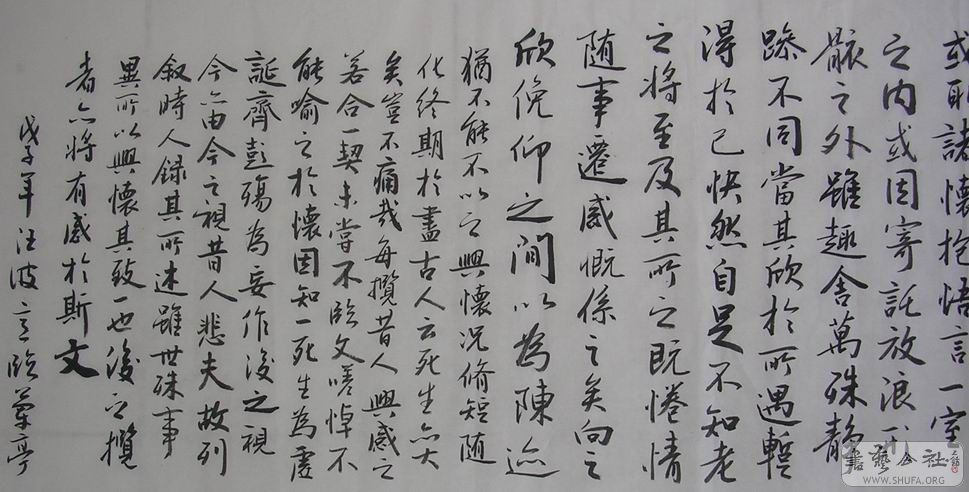 或取諸懷抱悟言一室
之內或因寄託放浪形
骸之外雖趣舍萬殊靜
躁不同當其欣於所遇暫
得於己快然自足不知老
之將至及其所之既惓情
隨事遷感慨係之矣向之
欣俛仰之間以為陳迹
猶不能不以之興懷況脩短隨
化終期於盡古人云死生亦大
矣豈不痛哉每攬昔人興感之
若合一契未嘗不臨文嗟悼不
能喻之於懷固知一死生為虛
誕齊彭殤為妄作後之視
今亦由今之視昔人悲夫故列
叙時人錄其所述雖世殊事
異所以興懷其致一也後之攬
者亦將有感於斯文
戊子年汪波臨蘭亭
書藝公社
WWW.SHUFA.ORG